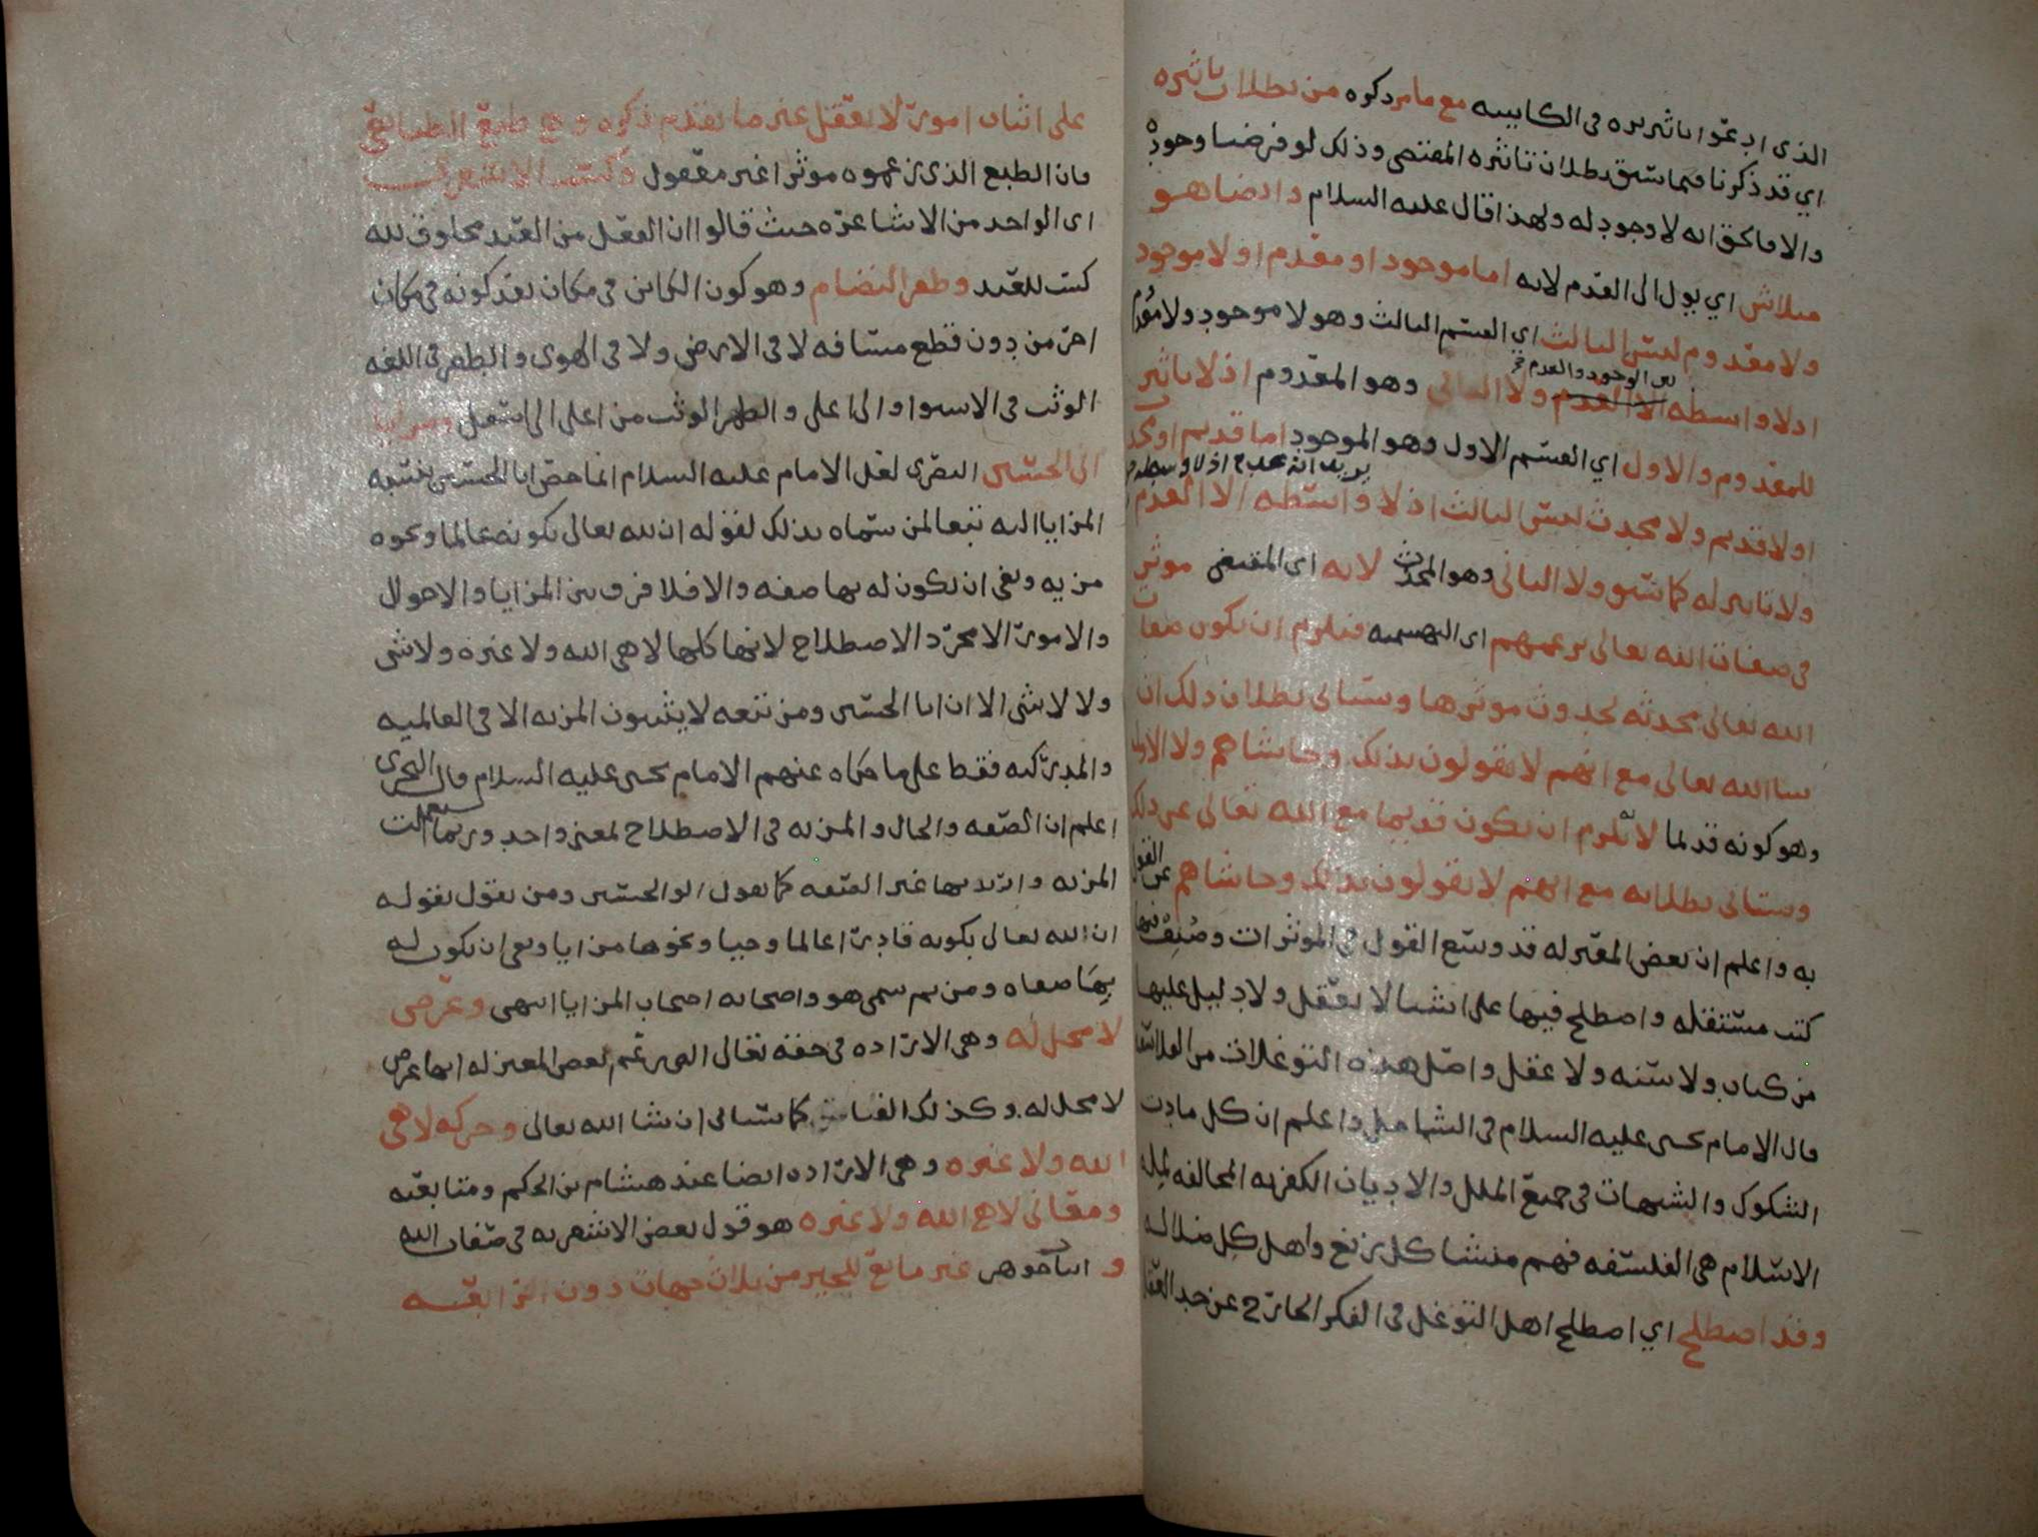 الذي ادعوا تاثيره في الكاينيه مع ما مر ذكره من بطلان تاثيره
اي قد ذكرنا فيما سبق بطلان تاثيره المقتضي وذلك لو فرضنا وجوده
والا فالحق انه لا وجود له ولهذا قال عليه السلام وايضا هو
متلاش اي يول الى العدم لانه اما موجود او معدوم او لا موجود
ولا معدوم ليس الثالث اي القسم الثالث وهو لا موجود ولا معدوم
اذ لا واسطه الا العدم ولا الثاني وهو المعدوم اذ لا تاثير
بين الوجود والعدم
للمعدوم والاول اي القسم الاول وهو الموجود اما قديم او محدث
او لا قديم ولا محدث ليس الثالث اذ لا واسطه الا العدم
ولا تاثير له كما سبق ولا الثاني وهو المحدث لانه اي المقتضي موثر
في صفات الله تعالى بزعمهم اي البهشميه فيلزم ان تكون صفات
الله تعالى محدثه لحدوث موثرها وسياتي بطلان ذلك ان
شا الله تعالى مع انهم لا يقولون بذلك وحاشاهم ولا الاول
وهو كونه قديما لانه يلزم ان يكون قديما مع الله تعالى عن ذلك
وسياتي بطلانه مع انهم لا يقولون بذلك وحاشاهم عن القول
به واعلم ان بعض المعتزله قد وسع القول في الموثرات وصنف فيها
كتب مستقله واصطلح فيها على اشيا لا تعقل ولا دليل عليها
من كتاب ولا سنه ولا عقل واصل هذه التوغلات من الفلاسفه
قال الامام يحيى عليه السلام في الشامل واعلم ان كل مادت
الشكوك والشبهات في جميع الملل والاديان الكفريه المخالفه لمله
الاسلام هي الفلسفه فهم منشا كل زيغ واهل كل ضلاله
وقد اصطلح اي اصطلح اهل التوغل في الفكر الخارج عن حد العقل
على اثبات امور لا تعقل غير ما تقدم ذكره وهي طبع الطبايعي
فان الطبع الذي زعموه موثرا غير معقول وكسب الاشعري
اي الواحد من الاشاعره حيث قالوا ان الفعل من العبد مخلوق لله
كسب للعبد وطفر النضام وهو كون الكاين في مكان بعد كونه في مكان
اخر من دون قطع مسافه لا في الارض ولا في الهوى والطفر في اللغه
الوثب في الاستوا او الى اعلى والطمر الوثب من اعلى الى اسفل ومزايا
ابي الحسين البصري لعل الامام عليه السلام انما خص ابا الحسين بنسبه
المزايا اليه تبعا لمن سماه بذلك لقوله ان لله تعالى بكونه عالما ونحوه
مزيه ونفى ان يكون له بها صفه والا فلا فرق بين المزايا والاحوال
والامور الا مجرد الاصطلاح لانها كلها لا هي الله ولا غيره ولا شي
ولا لا شي الا ان ابا الحسين ومن تبعه لا يثبتون المزيه الا في العالميه
والمدركيه فقط على ما حكاه عنهم الامام يحيى عليه السلام قال النجري
اعلم ان الصفه والحال والمزيه في الاصطلاح لمعنى واحد وربما استعملت
المزيه واريد بها غير الصفه كما يقول ابو الحسين ومن يقول بقوله
ان لله تعالى بكونه قادرا عالما وحيا ونحوها مزايا ونفى ان يكون له
بها صفات ومن ثم سمي هو واصحابه اصحاب المزايا انتهى وعرض
لا محل له وهي الاراده في حقه تعالى التي زعم بعض المعتزله انها عرض
لا محل له وكذلك الفنا كما سياتي ان شا الله تعالى وحركه لا هي
الله ولا غيره وهي الاراده ايضا عند هشام بن الحكم ومتابعيه
ومعاني لا هي الله ولا غيره هو قول بعض الاشعريه في صفات الله
و اثبات جوهر غير مانع للحيز من ثلاث جهات دون الرابعه